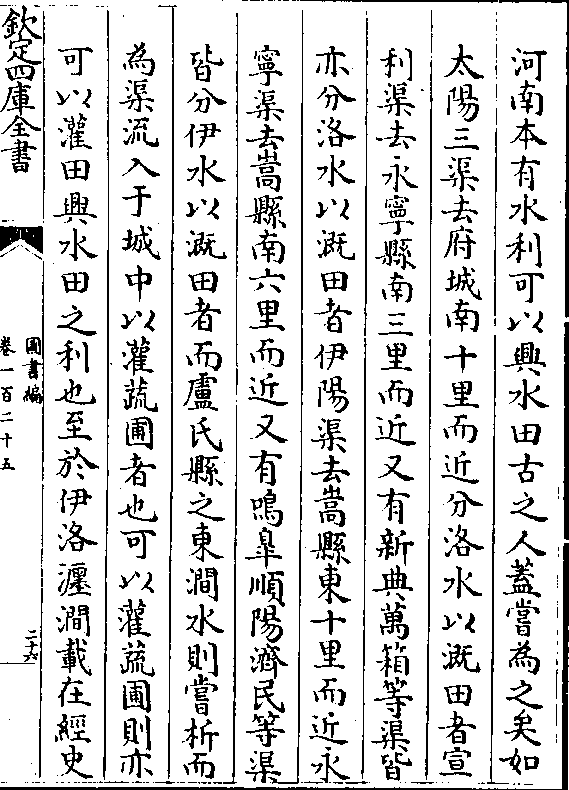 河南本有水利可以興水田古之人蓋嘗為之矣如
太陽三渠去府城南十里而近分洛水以溉田者宣
利渠去永寧縣南三里而近又有新典萬箱等渠皆
亦分洛水以溉田者伊陽渠去嵩縣東十里而近永
寧渠去嵩縣南六里而近又有鳴臯順陽濟民等渠
皆分伊水以溉田者而盧氏縣之東澗水則嘗析而
為渠流入于城中以灌蔬圃者也可以灌蔬圃則亦
可以灌田興水田之利也至於伊洛瀍澗載在經史
欽定四庫全書
圖書編
卷一百二十五
二十六